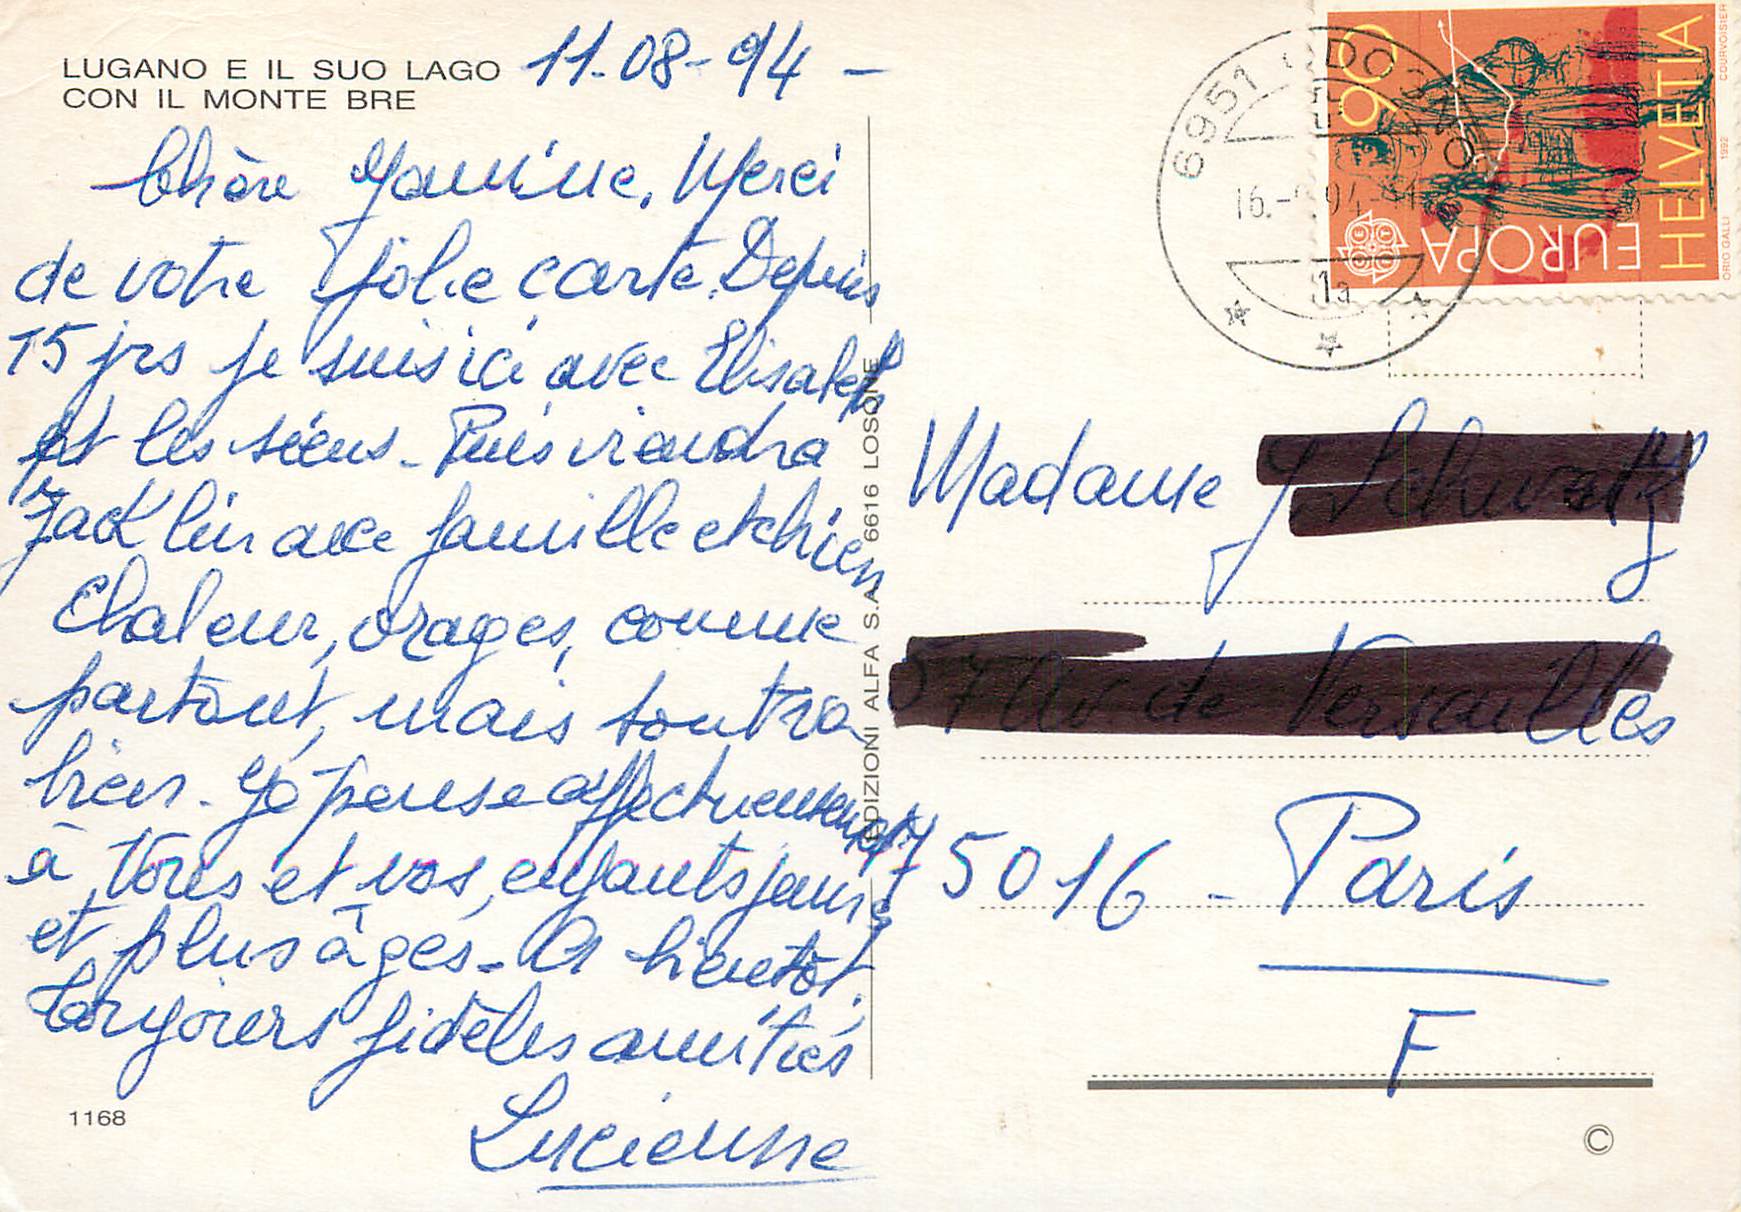 LUGANO E IL SUO LAGO
CON IL MONTE BRE
11-08-94 -
Chère Yanine, Merci
de votre jolie carte. Depuis
15 jrs je suis ici avec Elisabeth
et les siens - Puis viendra
avec famille et chien
Chaleur, orages, comme
partout, mais tout va
bien - Je pense affectueusement
à Vous et vos enfants jeunes
et plus âgés - A bientôt,
toujours fidèles amitiés
Lucienne
1168
EDIZIONI ALFA S.A. 6616 LOSONE
6951
16.- 94-
1a
90
HELVETIA
EUROPA
CEPT
ORIO GALLI 1992 COURVOISIER
Madame
de Versailles
75016 - Paris
F
©